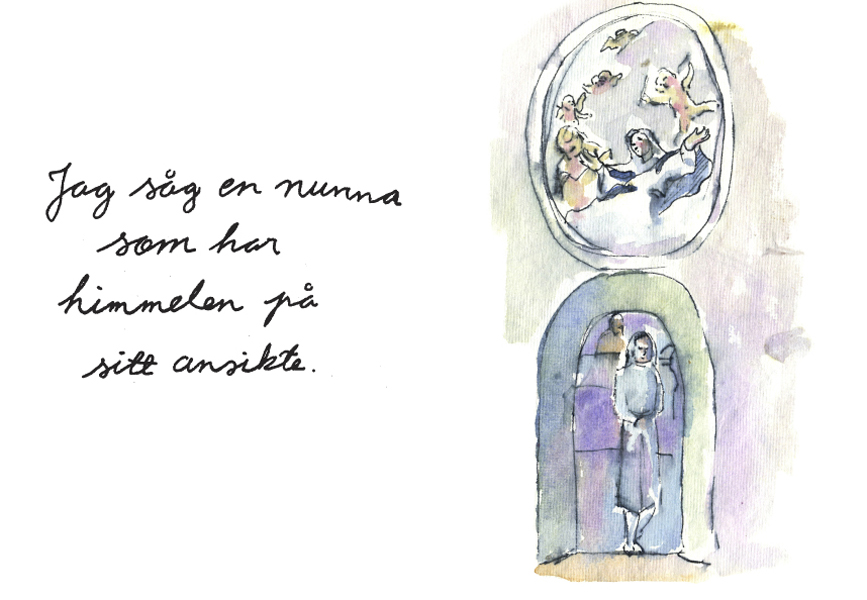 Jag såg en nunna
som har
himmelen på
sitt ansikte.